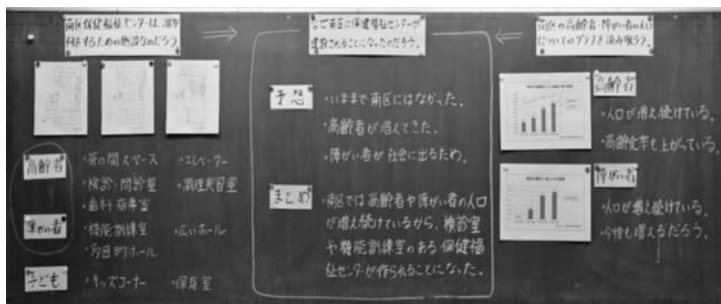 南区保健福祉センターは、誰が
何をするための施設なのだろう。
高齢者
・茶の間スペース ・エレベーター
・検診・問診室 ・調理実習室
・歯科指導室
障がい者
・機能訓練室 ・広いホール
・多目的ホール
子ども
・キッズコーナー ・保育室
南区に保健福祉センターが
建設されることになったのだろう。
予想
・いままで南区にはなかった。
・高齢者が増えてきた。
・障がい者が社会に出るため。
まとめ
・南区では高齢者や障がい者の人口
が増え続けているから、検診室
や機能訓練室のある保健福
祉センターが作られることになった。
南区の高齢者・障がい者の人口
についてのグラフを読み取ろう。
高齢者
・人口が増え続けている。
・高齢化率も上がっている。
障がい者
・人口が増え続けている。
・今後も増えるだろう。